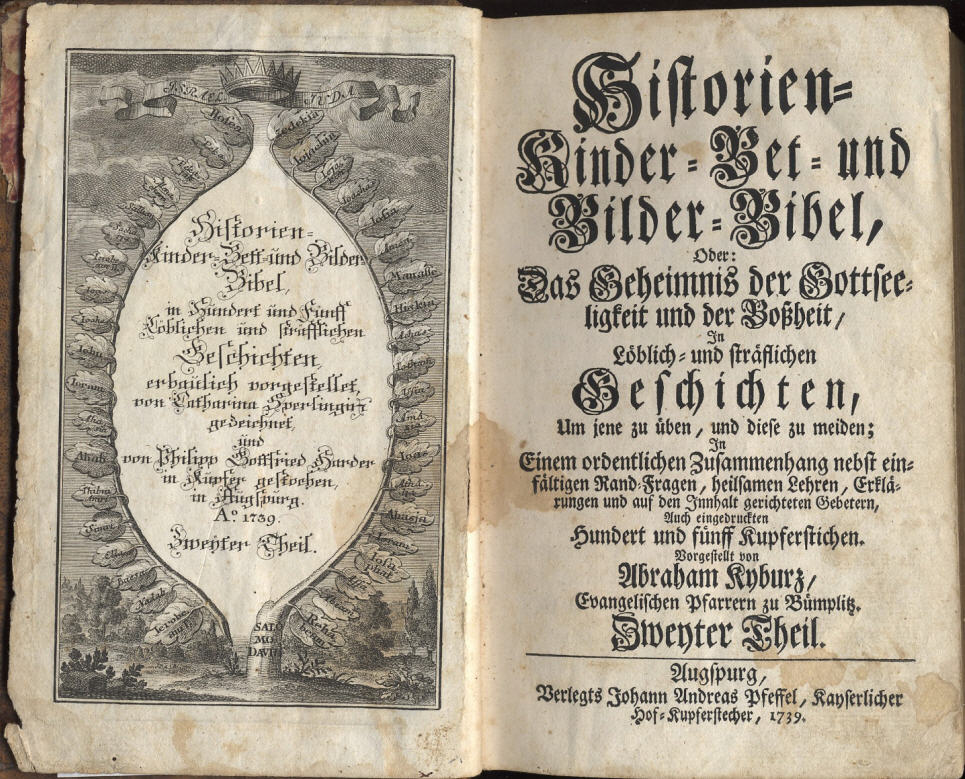 ISRAEL
JUDA
Hosea
Zedekia
Jojachin
Josia
Amon
Manasse
Hiskia
Ahas
Jotham
Usia
Joas
Ahasja
Joram
Josaphat
Assa
Rehabeam
Jehu
Joram
Ahab
Simri
Ella
Baesa
Nadab
Jerobeam
SALO
MO
DAVID
Historien-
Kinder-Bett-und Bilder
Bibel,
in Hundert und Fünff
Löblichen und sträfflichen
Geschichten,
erbaulich vorgestellet,
von Catharina Sperlingin
gezeichnet,
und
von Philipp Gottfried Harder
in Kupfer gestochen,
in Augspurg.
Aº. 1739.
Zweyter Theil.
Historien-
Kinder-Bet-und
Bilder-Bibel,
Oder:
Das Geheimnis der Gottsee-
ligkeit und der Boßheit,
In
Löblich- und sträflichen
Geschichten,
Um jene zu üben, und diese zu meiden;
In
Einem ordentlichen Zusammenhang nebst ein-
fältigen Rand-Fragen, heilsamen Lehren, Erklä-
rungen und auf den Innhalt gerichteten Gebetern,
Auch eingedruckten
Hundert und fünff Kupferstichen.
Vorgestellt von
Abraham Kyburz,
Evangelischen Pfarrern zu Bümplitz.
Zweyter Theil.
Augspurg,
Verlegts Johann Andreas Pfeffel, Kayserlicher
Hof-Kupferstecher, 1739.